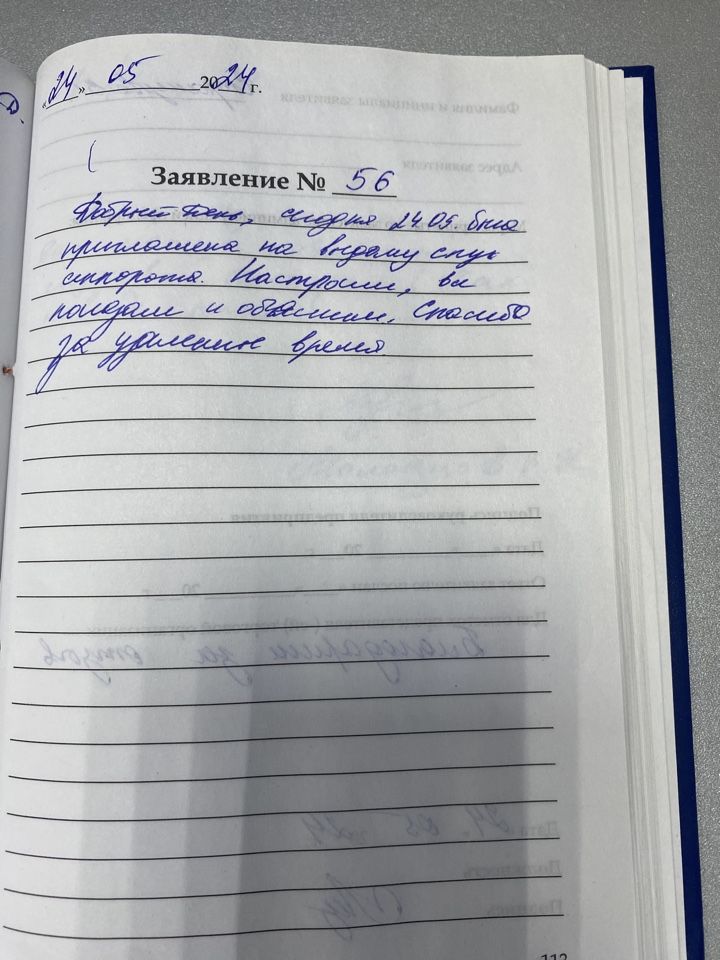 «24» 05 2024 г.
Заявление № 56
Добрый день, сегодня 24.05. была
приглашена на выдачу слух
аппарата. Настроили, все
показали и объяснили. Спасибо
за уделенное время
112